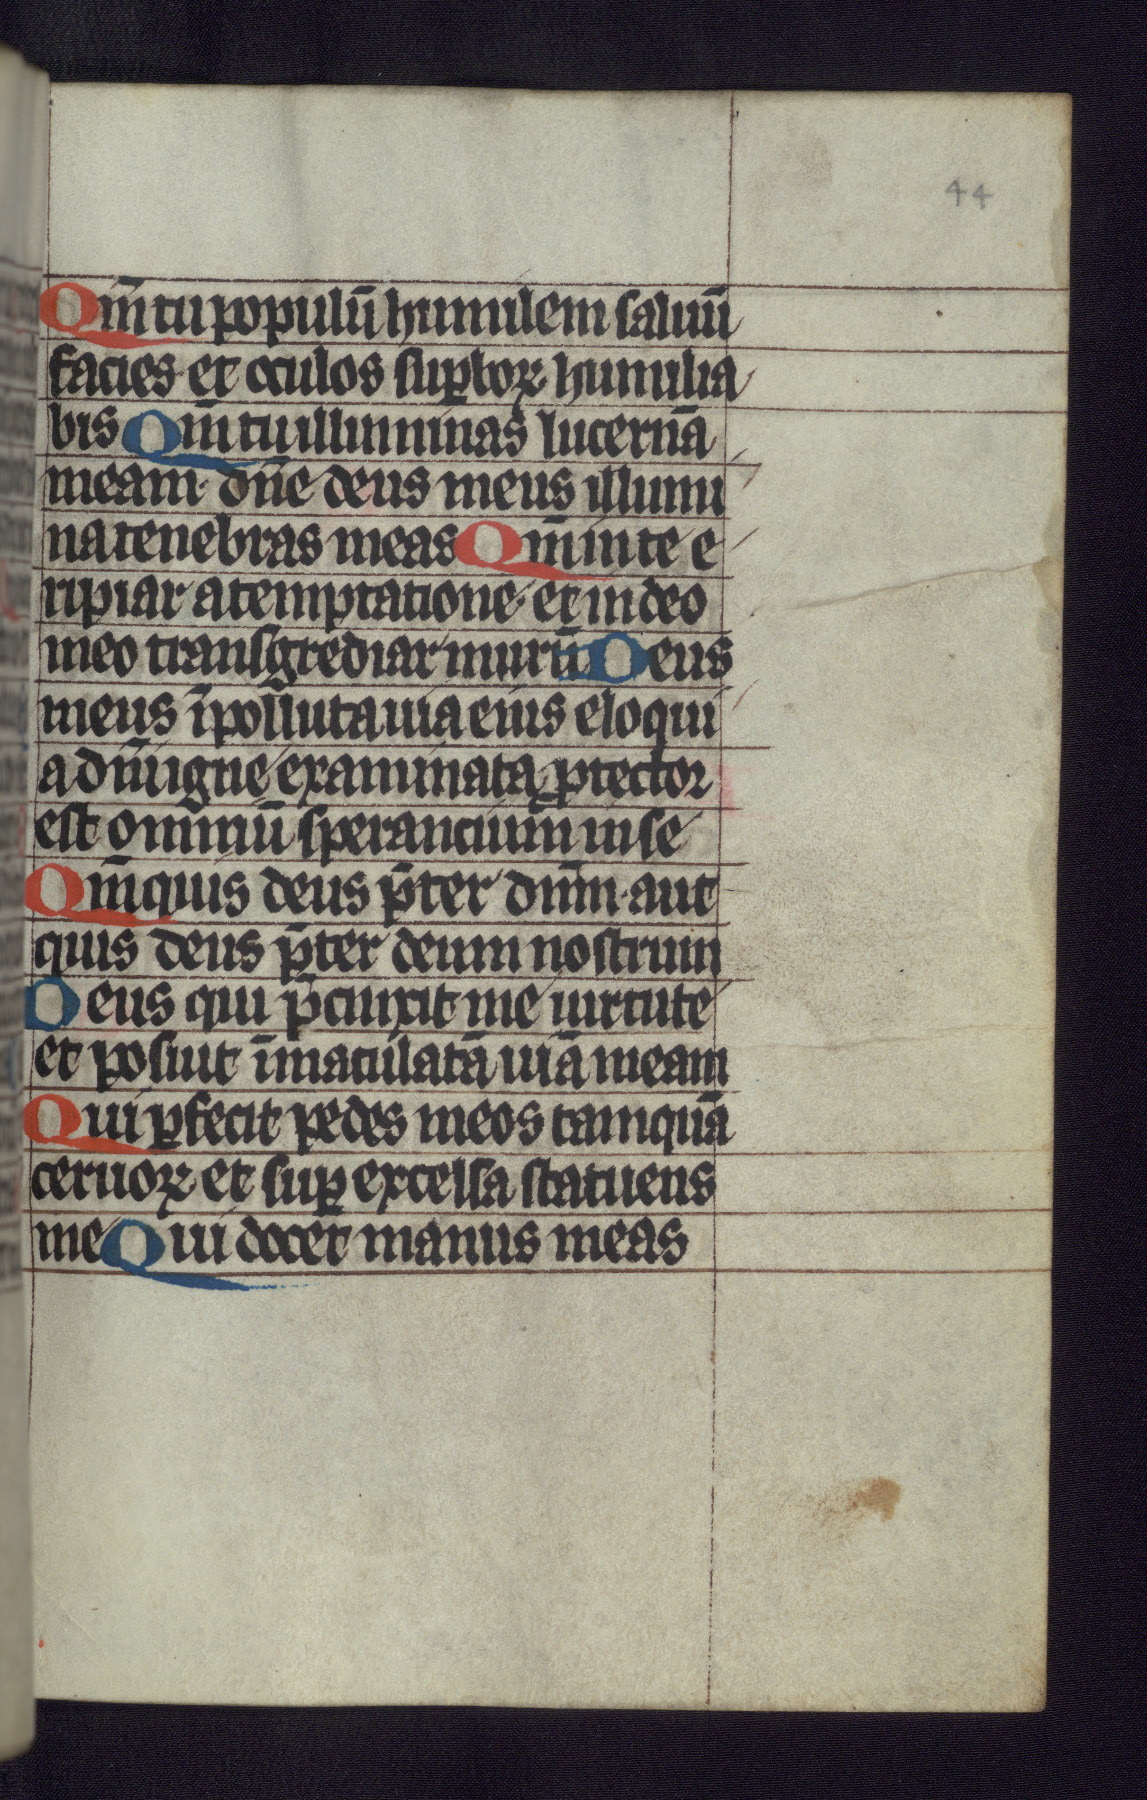 44
Qm̄ tu populū humilem saluū
facies et oculos suꝑboꝝ humilia
bis Qm̄ tu illuminas lucernā
meam· dn̄e deus meus illumi
na tenebras meas Qm̄ in te e
ripiar a temptatione· et in deo
meo transgrediar murū Deus
meus īpolluta uia eius eloqui
a dn̄i igne examinata ꝓtector
est omniū sperancium in se
Qm̄ quis deus p̄ter dn̄m· aut
quis deus p̄ter deum nostrum
Deus qui p̄cinxit me uirtute
et posuit īmaculatā uiā meam
Qui ꝑfecit pedes meos tamquā
ceruoꝝ et suꝑ excelsa statuens
me Qui docet manus meas